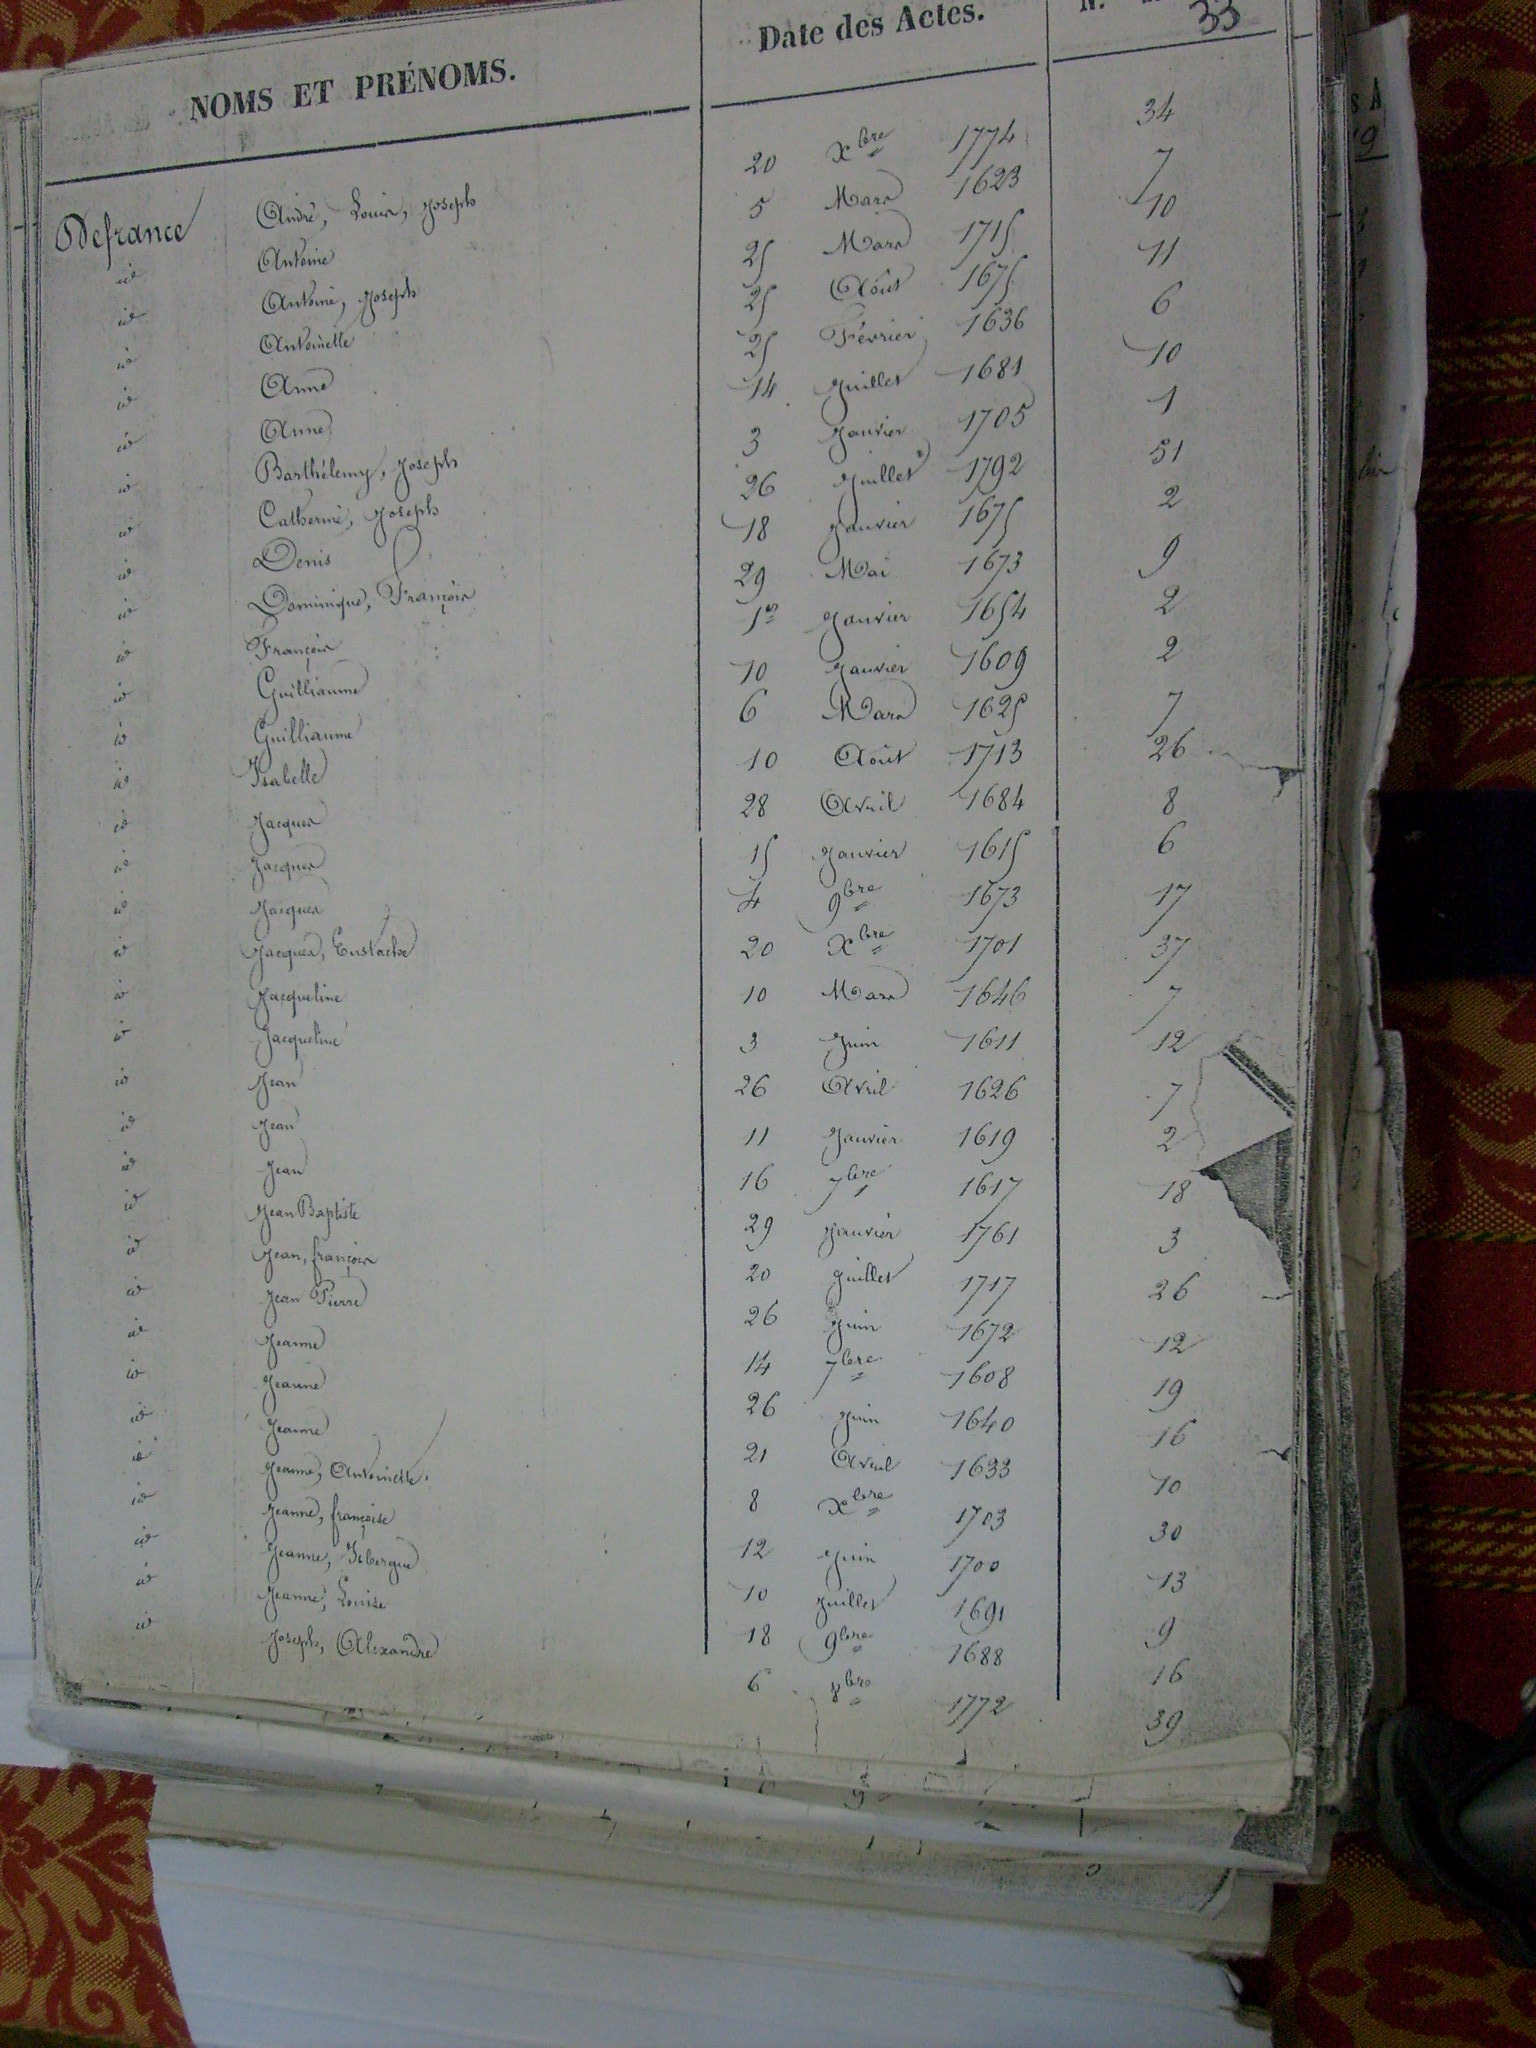 NOMS ET PRÉNOMS. Date des Actes. N.
33
Defrance André, Louis, Joseph 20 Xbre 1774 34
id Antoine 5 Mars 1623 7
id Antoine, Joseph 25 Mars 1715 10
id Antoinette 25 Août 1675 11
id Anne 25 Février 1636 6
id Anne 14 Juillet 1681 10
id Barthélemy, Joseph 3 Janvier 1705 1
id Catherine, Joseph 26 Juillet 1792 51
id Denis 18 Janvier 1675 2
id Dominique, François 29 Mai 1673 9
id François 1er Janvier 1654 2
id Guilliaume 10 Janvier 1609 2
id Guilliaume 6 Mars 1625 7
id Isabelle 10 Août 1713 26
id Jacques 28 Avril 1684 8
id Jacques 15 Janvier 1615 6
id Jacques 4 9bre 1673 17
id Jacques, Eustache 20 Xbre 1701 37
id Jacqueline 10 Mars 1646 7
id Jacqueline 3 Juin 1611 12
id Jean 26 Avril 1626 7
id Jean 11 Janvier 1619 2
id Jean 16 7bre 1617 18
id Jean Baptiste 29 Janvier 1761 3
id Jean, françois 20 Juillet 1717 26
id Jean Pierre 26 Juin 1672 12
id Jeanne 14 7bre 1608 19
id Jeanne 26 Juin 1640 16
id Jeanne 21 Avril 1633 10
id Jeanne, Antoinette. 8 Xbre 1703 30
id Jeanne, françoise 12 Juin 1700 13
id Jeanne, Isbergue 10 Juillet 1691 9
id Jeanne, Louise 18 9bre 1688 16
id Joseph, Alexandre 6 8bre 1772 39